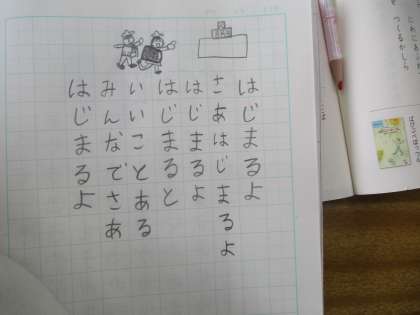 はじまるよ
さあはじまるよ
はじまるよ
はじまると
いいことある
みんなでさあ
はじまるよ